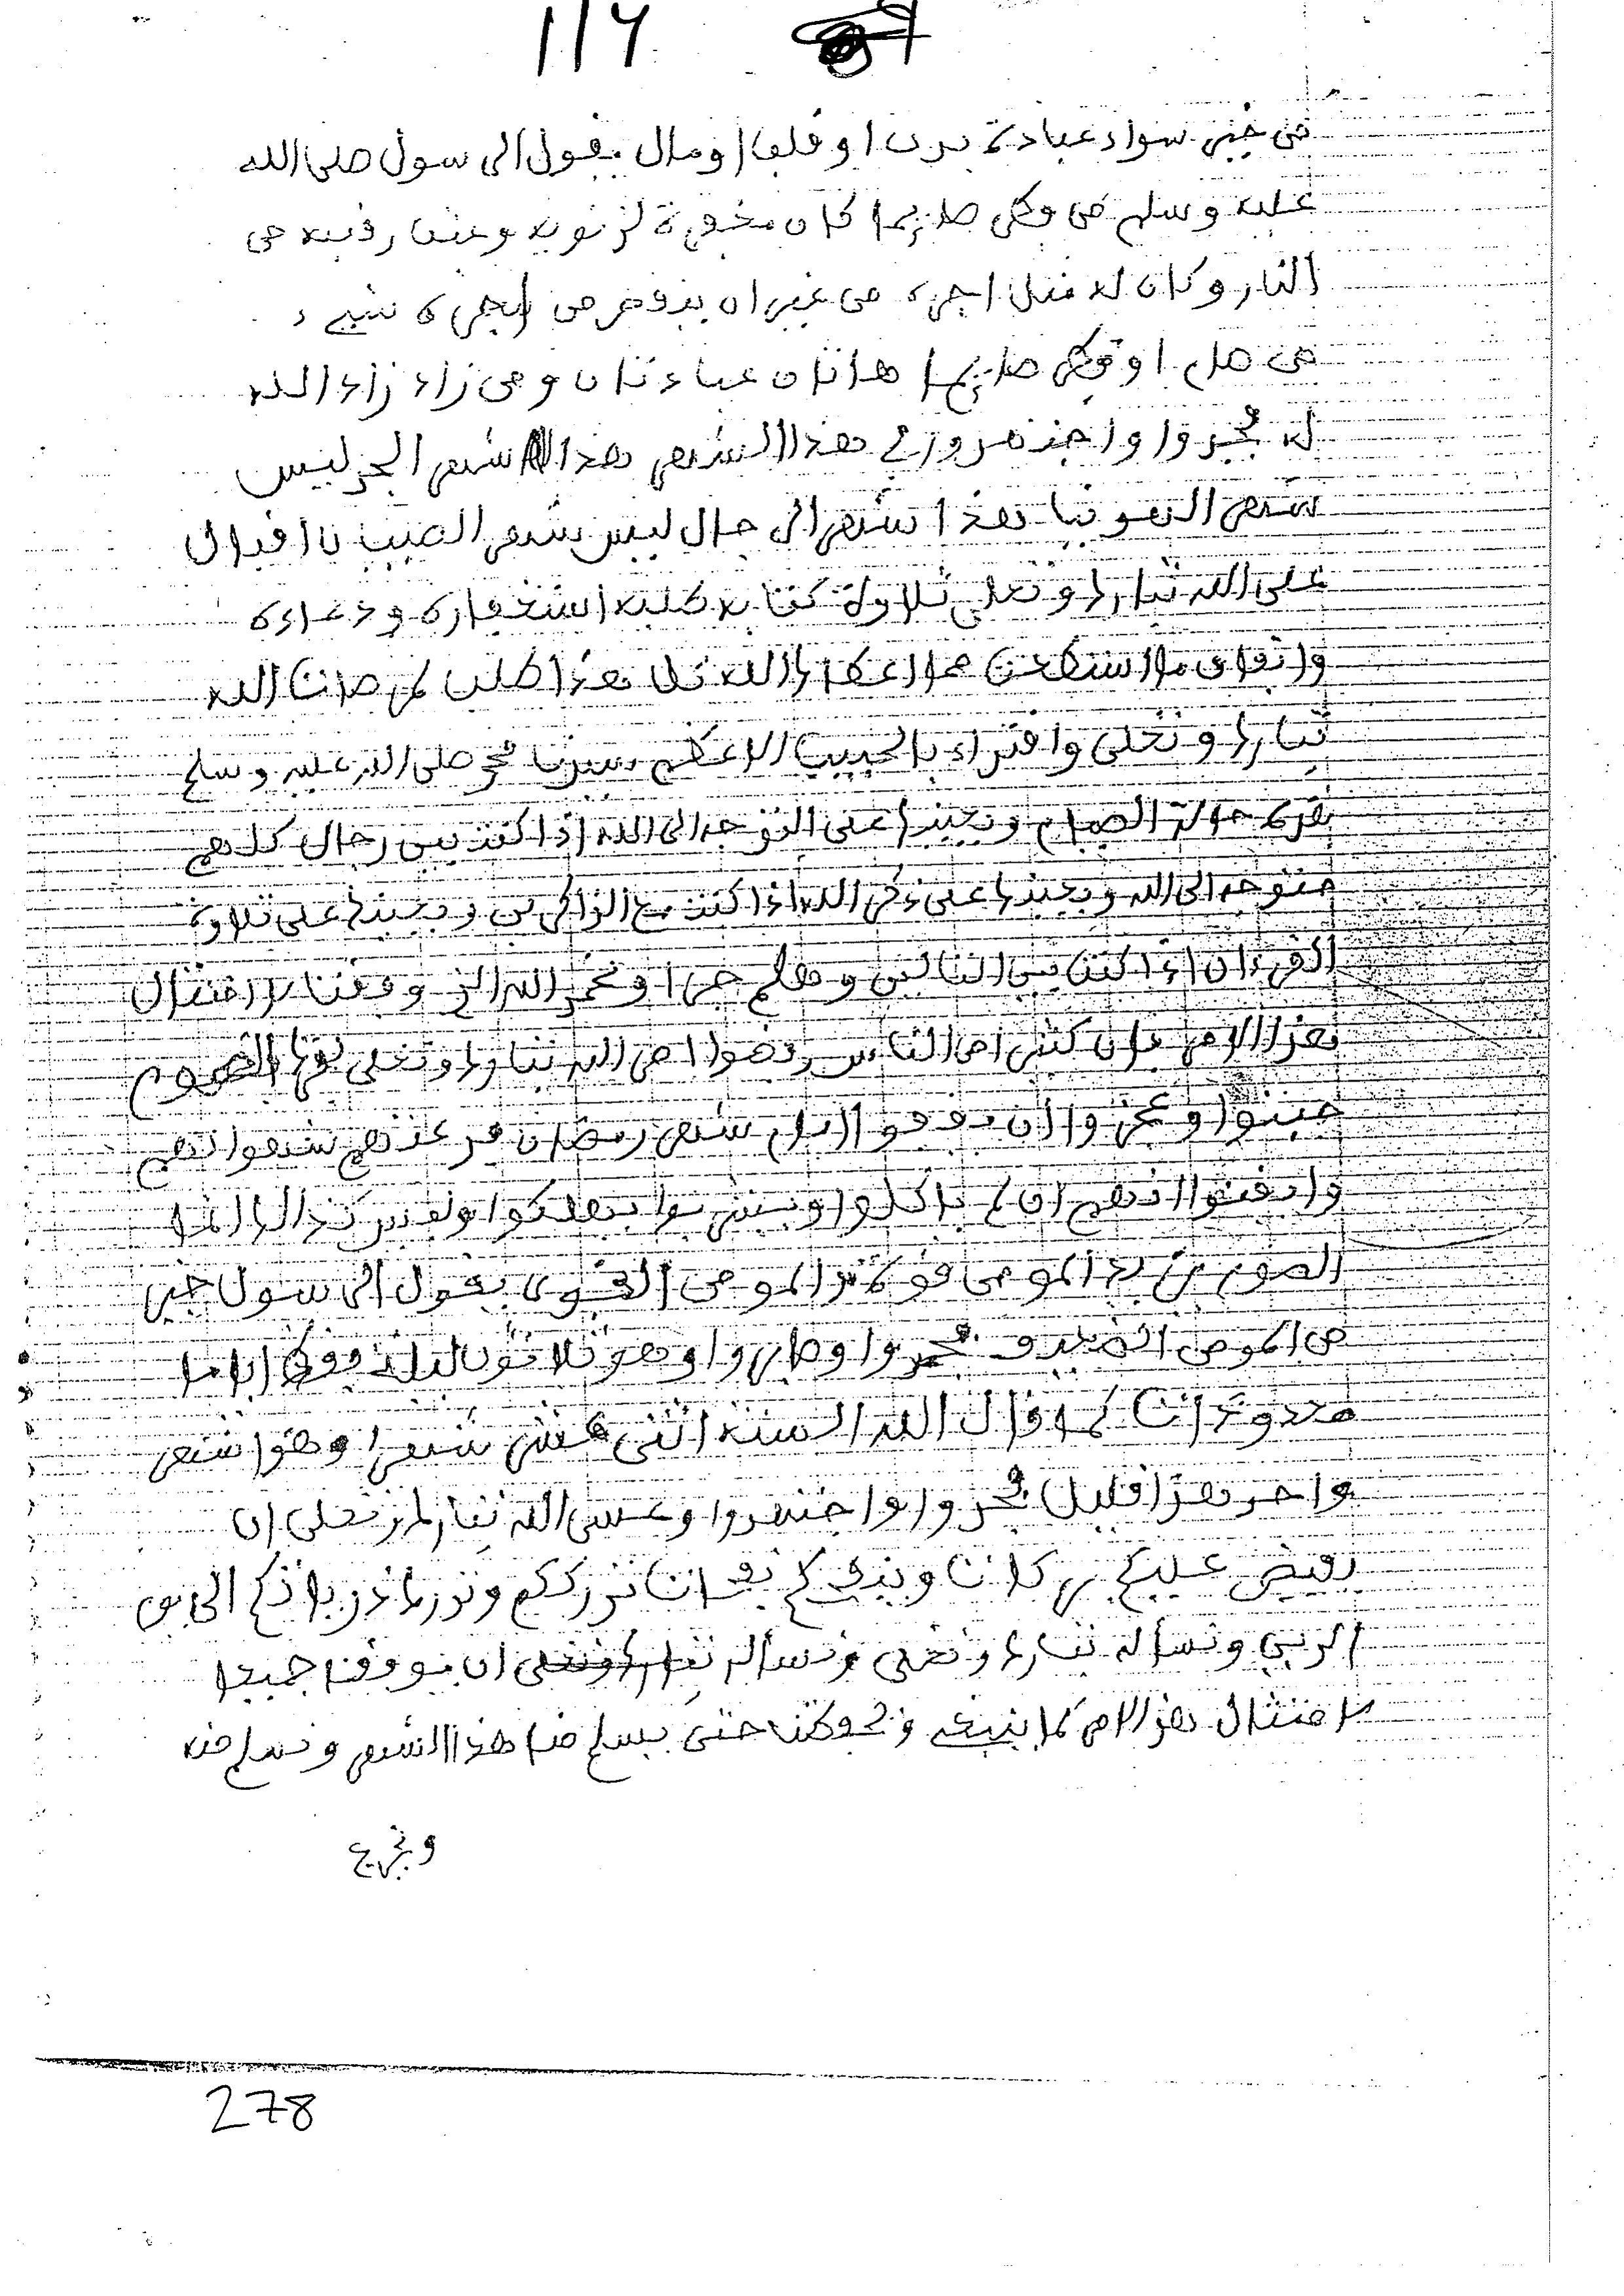 116
من خير سواء عبادة بدن او قلب او مال يقول الرسول صلى الله
عليه وسلم من فطر صايما كان مغفرة لذنوبه وعتق رقبه من
النار وكان له مثل اجره من غير ان ينقص من اجره شيء
من صام او فطر صايما هاتان عبادتان ومن زاد زاد الله
له فجدوا واجتهدوا في هذا الشهر هذا شهر الجد ليس
شهر الهوينا هذا شهر الرجال ليس شهر الصبيان اقبال
على الله تبارك وتعلى تلاوة كتابه طلبه استغفاره ودعاءه
وانفاق ما استطعت مما اعطاك الله كل هذا طلب لمرضات الله
تبارك وتعلى واقتداء بالحبيب الاعظم سيدنا محمد صلى الله عليه وسلم
حالة الصيام ويعينك على التوجه الى الله اذا كنت بين رجال كلهم
متوجه الى الله ويعينك على ذكر الله اذا كنت مع الذاكرين ويعينك على تلاوة
القرءان اذا كنت بين التالين وهلم جرا ونحمد الله الذي وفقنا لامتثال
هذا الامر فإن كثيرا من الناس رفضوا امر الله تبارك وتعلى بهذا الصوم
جبنوا وعجزوا ان يقفوا امام شهر رمضان قد غلبتهم شهواتهم
وايقنوا انهم ان لم ياكلوا ويشربوا يهلكوا وليس كذالك انما
الصوم يزيد المومن قوة المومن القوي يقول الرسول خير
من المومن الضعيف فجدوا وصابروا وهو ثلاثون ليلة فقط اياما
معدودات كما قال الله السنة اثنى عشر شهرا وهو شهر
واحد هذا قليل فجدوا واجتهدوا وعسى الله تبارك وتعلى ان
يفيض عليكم بركاته
الدين ونسأله تبارك وتعلى ونسأله تبارك وتعلى ان يوفقنا جميعا
لامتثال هذا الامر كما ينبغي حتى يسلم منا هذا الشهر ونسلم منه
278